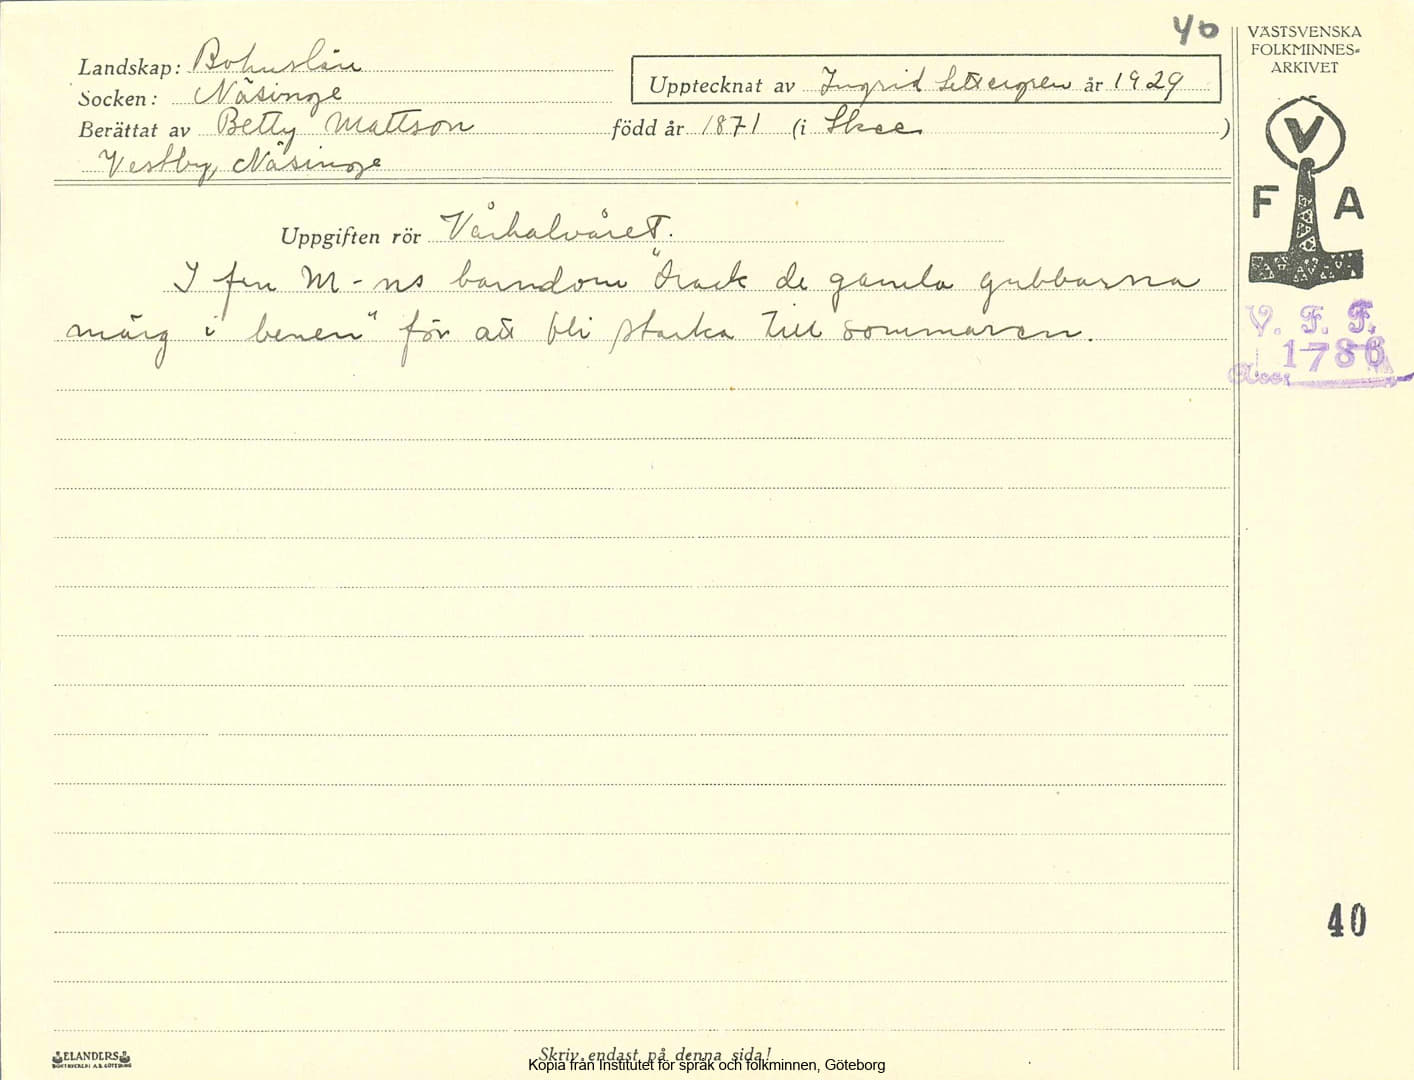 40
VÄSTSVENSKA
FOLKMINNES-
ARKIVET
Landskap: Bohuslän
Upptecknat av Ingrid Settergren år 1929
Socken: Näsinge
Berättat av Betty Mattson född år 1871 (i Skee)
Vestby, Näsinge
V
F A
Uppgiften rör Vårhalvåret.
I fru M-ns barndom "drack de gamla gubbarna
märg i benen" för att bli starka till sommaren.
V. F. F.
1786
Acc:
40
ELANDERS
BOKTRYCKERI A.B. GÖTEBORG
Skriv endast på denna sida!
Kopia från Institutet för språk och folkminnen, Göteborg